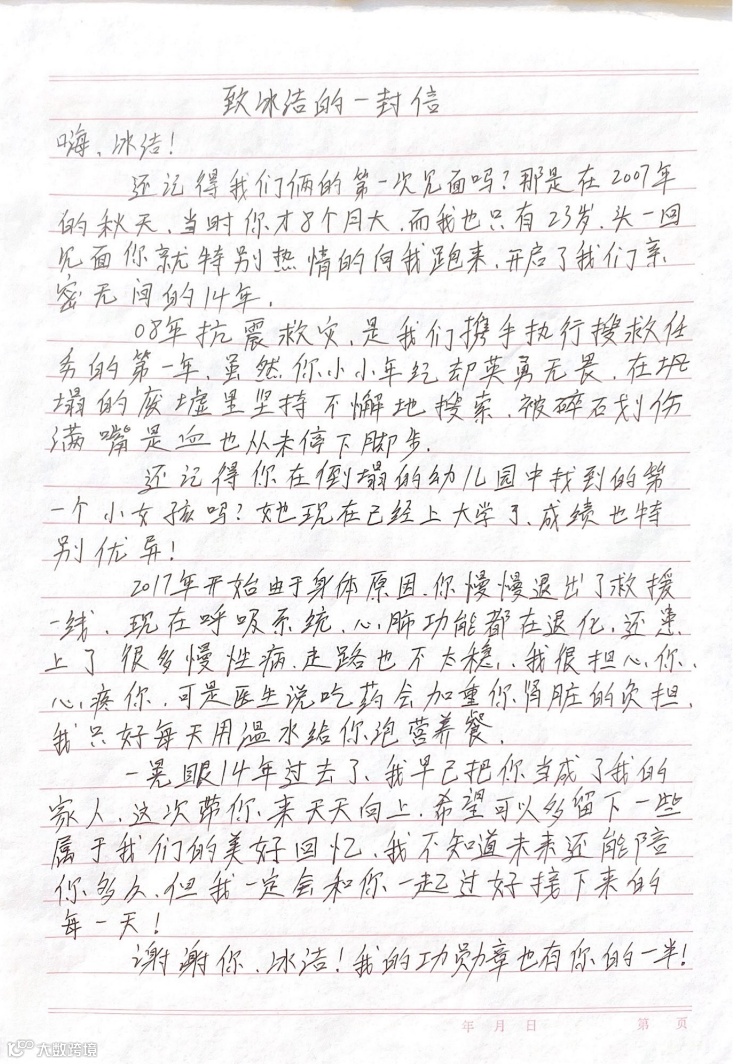 致冰洁的一封信
嗨、冰洁!
还记得我们俩的第一次见面吗?那是在2007年
的秋天,当时你才8个月大,而我也只有23岁,头一回
见面你就特别热情的向我跑来,开启了我们亲
密无间的14年.
08年抗震救灾,是我们携手执行搜救任
务的第一年,虽然你小小年纪却英勇无畏,在坍
塌的废墟里坚持不懈地搜索,被碎石划伤
满嘴是血也从未停下脚步.
还记得你在倒塌的幼儿园中找到的第
一个小女孩吗?她现在已经上大学了,成绩也特
别优异!
2017年开始由于身体原因,你慢慢退出了救援
一线,现在呼吸系统、心肺功能都在退化,还患
上了很多慢性病,走路也不太稳,我很担心你、
心疼你,可是医生说吃药会加重你肾脏的负担,
我只好每天用温水给你泡营养餐.
一晃眼14年过去了、我早已把你当成了我的
家人,这次带你来天天向上,希望可以多留下一些
属于我们的美好回忆、我不知道未来还能陪
你多久,但我一定会和你一起过好接下来的
每一天!
谢谢你、冰洁!我的功勋章也有你的一半!
年 月 日 第 页
大数跨境